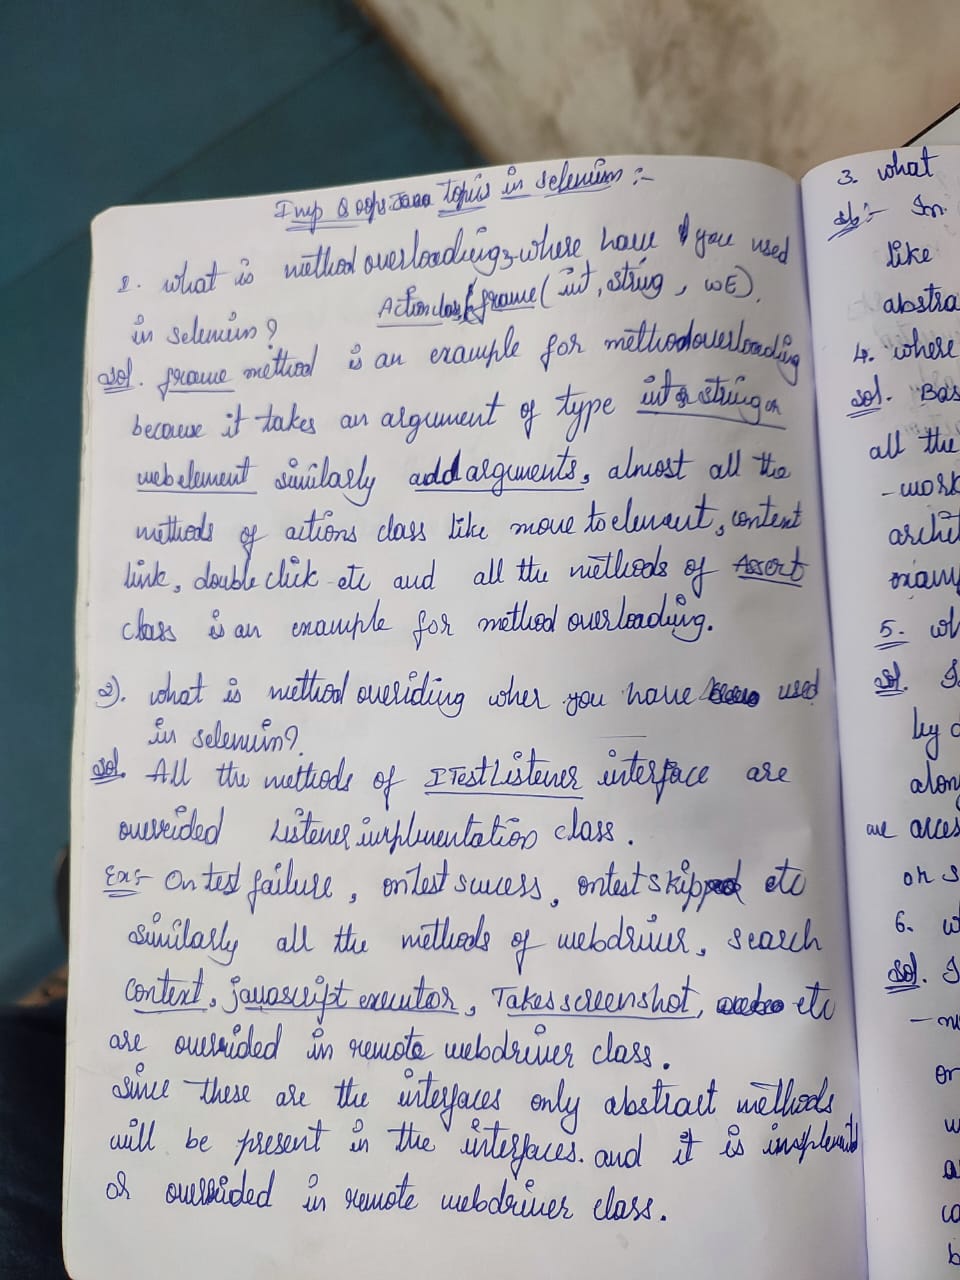 Imp Oops Java topics in selenium :-
1. what is method overloading, where have you used
in selenium? Action class, frame (int, string, WE).
Sol. frame method is an example for method overloading
because it takes an argument of type int or string or
webelement similarly add arguments, almost all the
methods of actions class like move to element, context
link, double click etc and all the methods of Assert
class is an example for method overloading.
2). what is method overiding wher you have used
in selenium?
Sol. All the methods of ITestListener interface are
overrided Listener implmentation class.
Ex:- On test failure, ontest success, ontest skipped etc
similarly all the methods of webdriver, search
context, javascript executor, Takes screenshot, etc
are overrided in remote webdriver class.
Since these are the interfaces only abstract methods
will be present in the interfaces. and it is implemented
or overrided in remote webdriver class.
3. what
Sol:- In
like
abstra
4. where
Sol. Bas
all the
-work
archit
exam
5. wh
Sol. I
by
along
are acces
or s
6. w
Sol. I
or